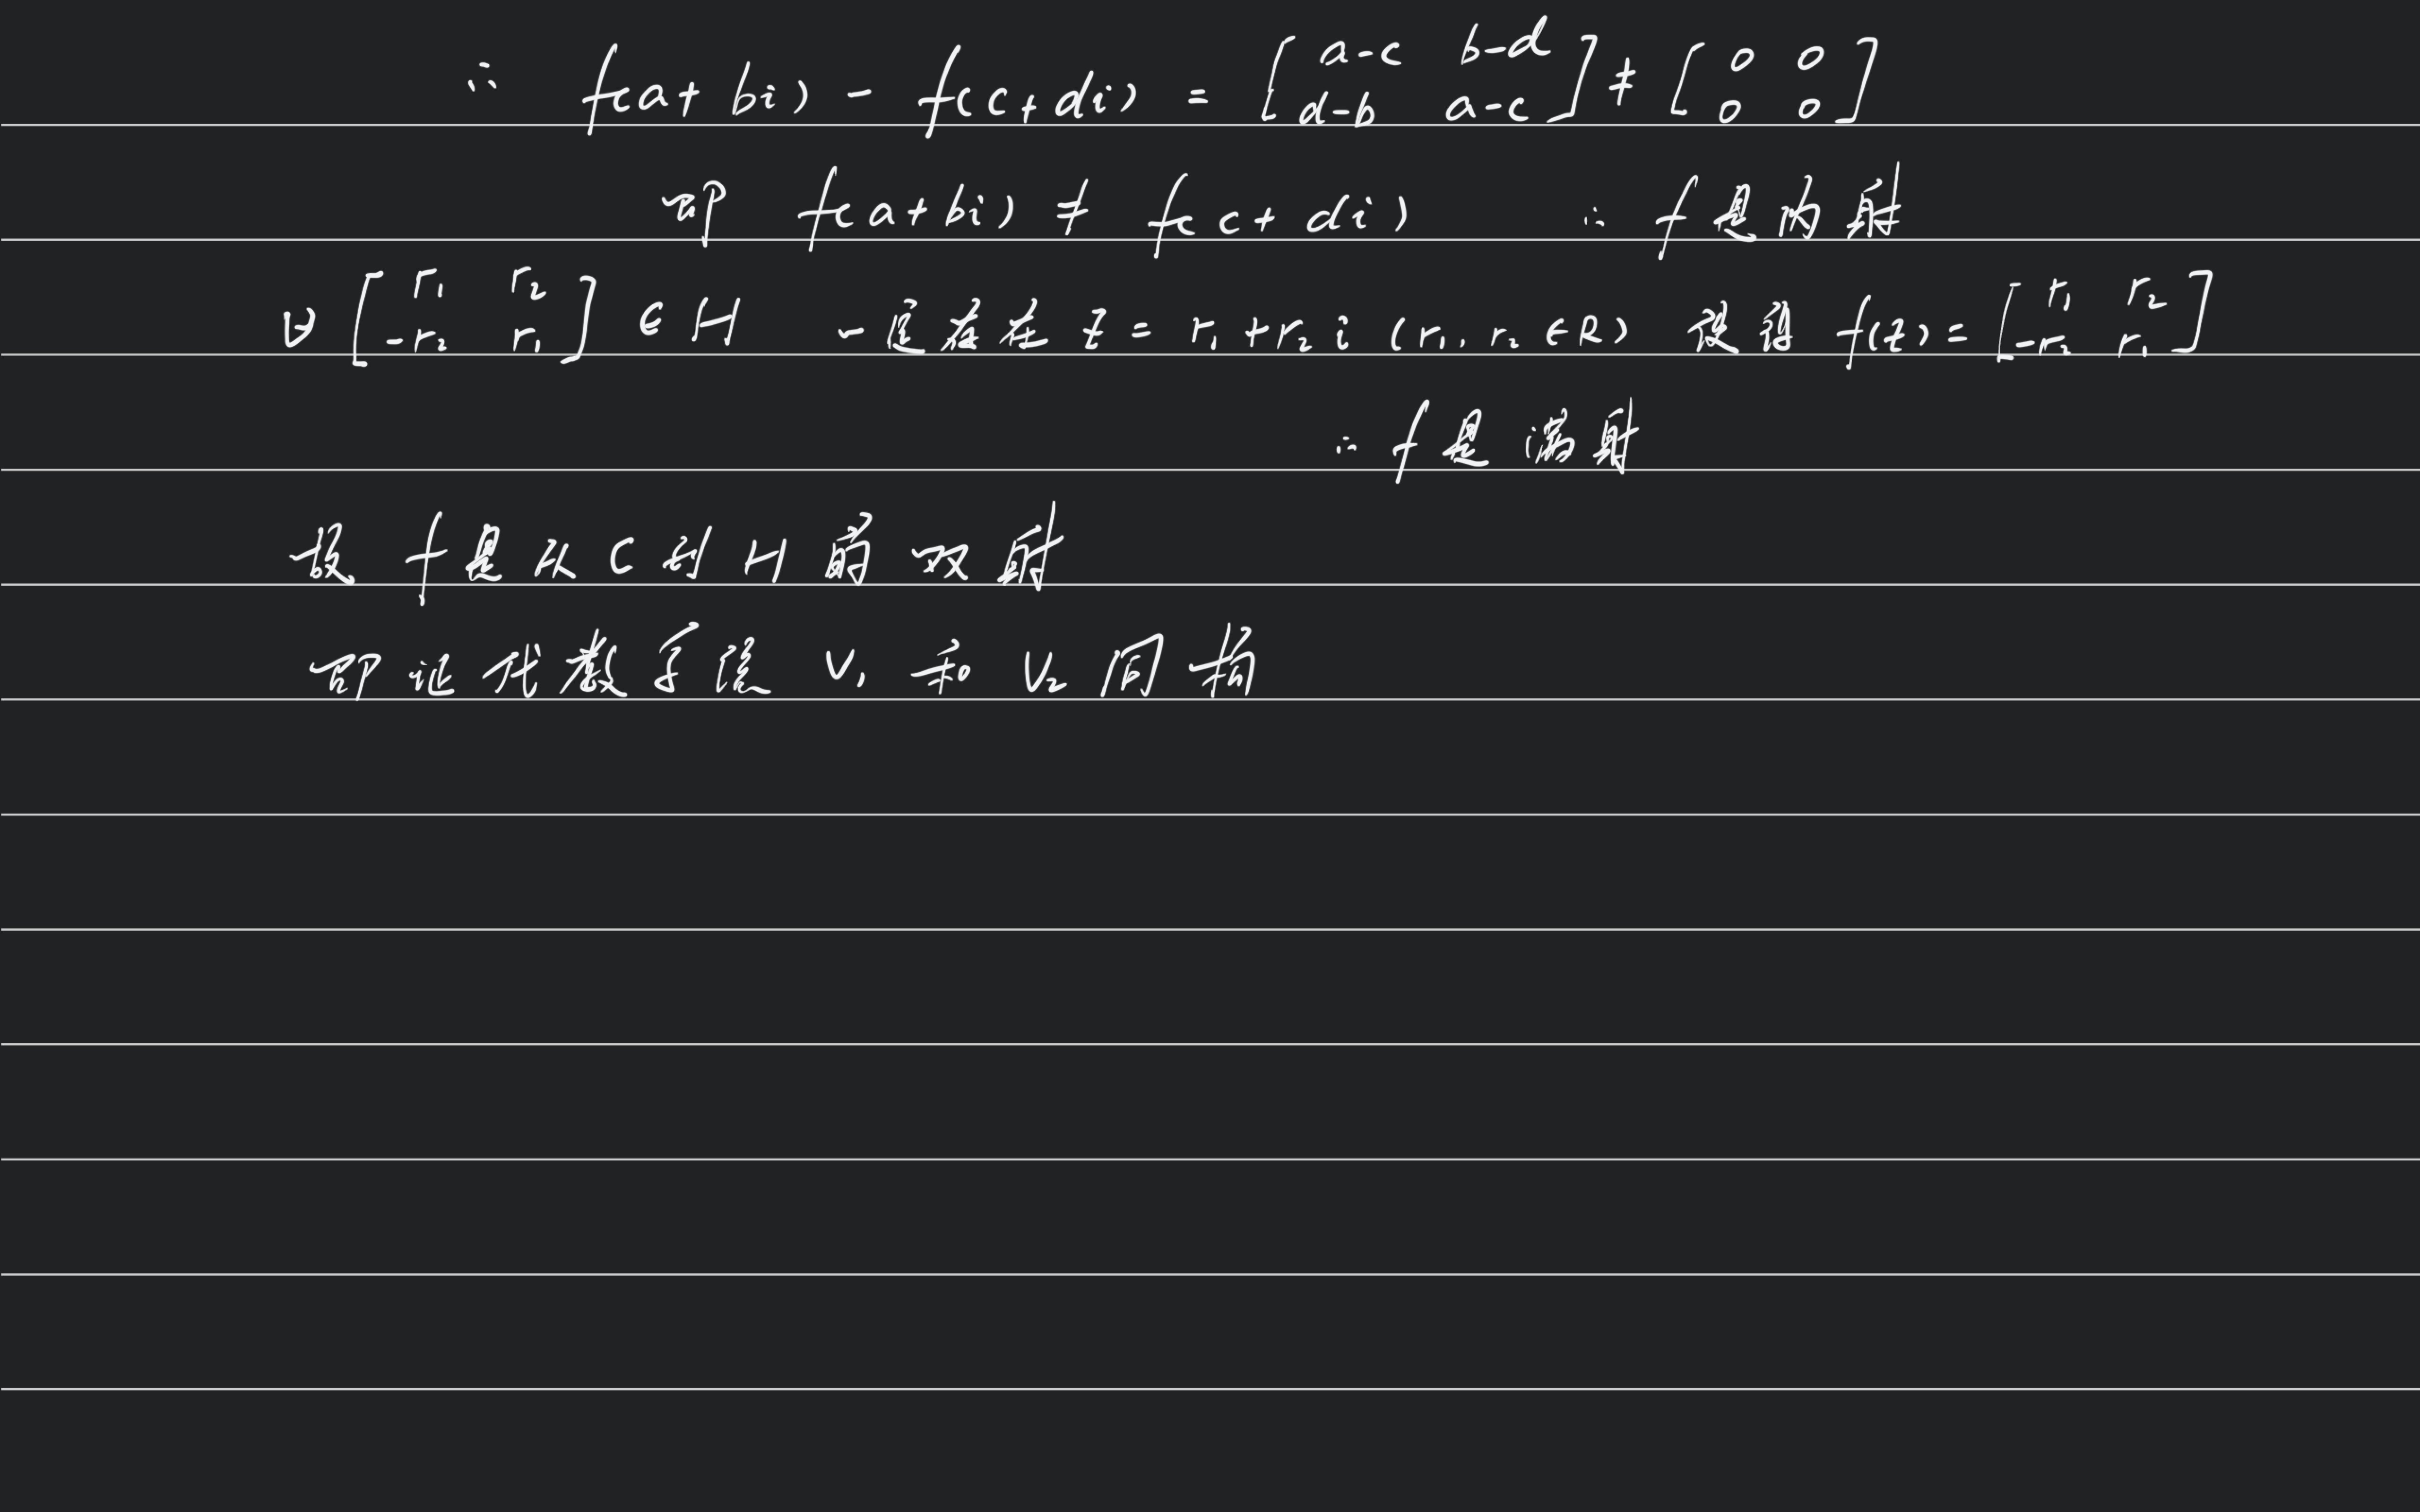 ∴ f(a+bi) - f(c+di) = [a-c b-d d-b a-c] ≠ [0 0 0 0]
即 f(a+bi) ≠ f(c+di) ∴ f是内射
∀ [r₁ r₂ -r₂ r₁] ∈ H 一定存在 z = r₁+r₂i (r₁, r₂ ∈R) 使得 f(z) = [r₁ r₂ -r₂ r₁]
∴ f是满射
故 f是从 C 到 H 的双射
即证代数系统 V₁ 和 V₂ 同构